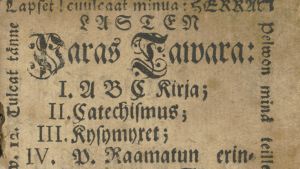 Lapset! cuulcaat minua: HERRAN
LASTEN
Paras Tawara:
I. A B C Kirja;
II. Catechismus;
III. Kysymyxet;
IV. P. Raamatun erin-
v. 12. Tulcat tänne
Pelwon minä teille